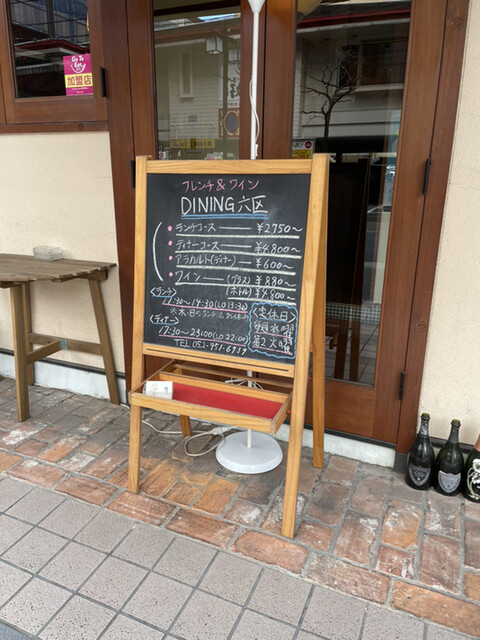 Go To Eat
加盟店
フレンチ&ワイン
DINING 六区
ランチコース ¥2,750〜
ディナーコース ¥4,800〜
アラカルト(ディナー) ¥600〜
ワイン (グラス) ¥880〜
(ボトル) ¥4,800〜
<ランチ>
11:30〜14:30(LO 13:30)
<ディナー>
17:30〜23:00(LO 22:00)
TEL 052-951-6939
定休日
毎週水曜日
第2火曜日